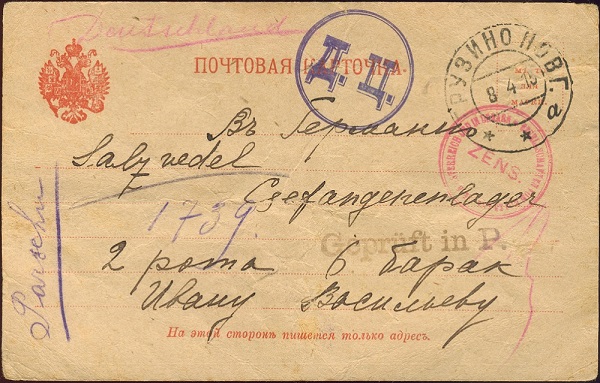 Deutschland
Д.Ц.
ПОЧТОВАЯ КАРТОЧКА.
ГРУЗИНО НОВГ.
8 4 16
г
Въ Германію
Salzvedel
ZENS
Gefangenenlager
1739.
Geprüft in P.
2 рота 6 барак
Ивану Васильеву
На этой сторонѣ пишется только адресъ.